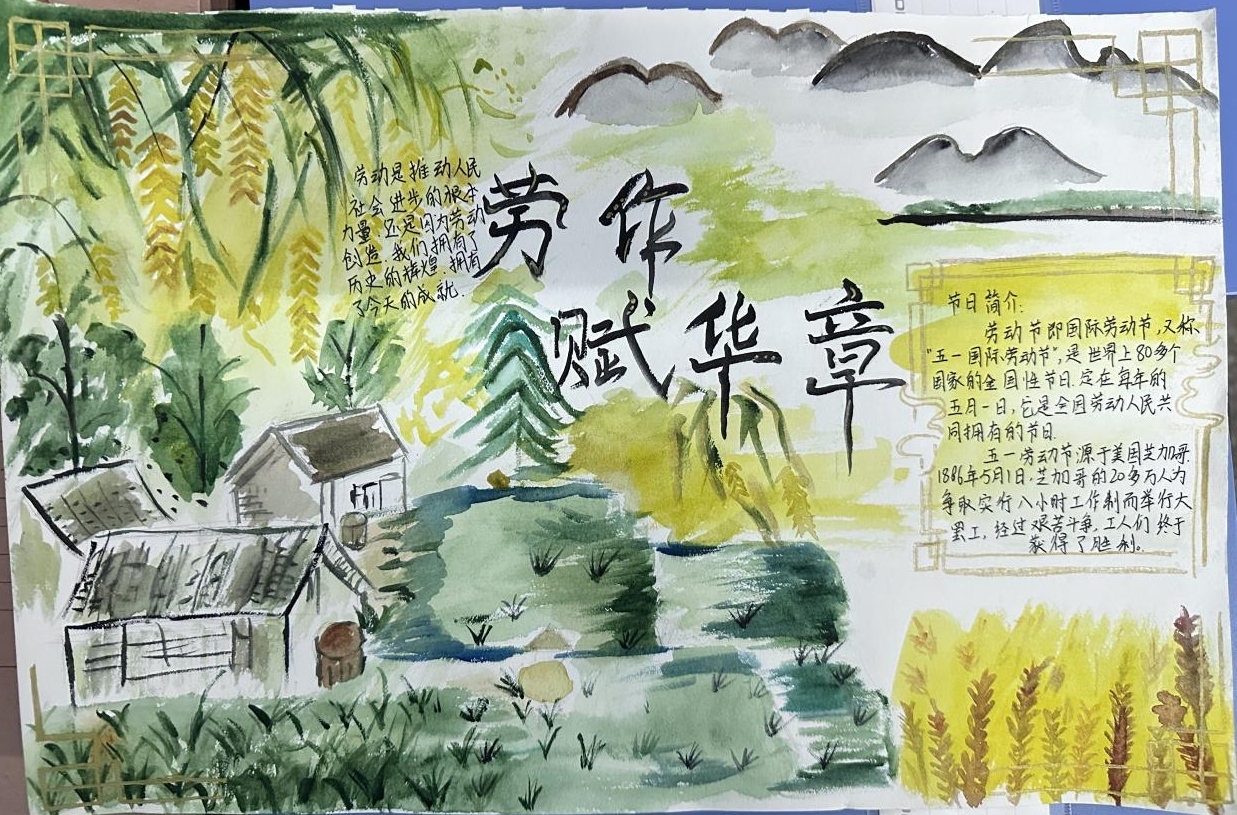 劳动是推动人民
社会进步的根本
力量.还是因为劳动
创造.我们拥有了
历史的辉煌.拥有
了今天的成就.
劳作
赋华章
节日简介:
劳动节即国际劳动节,又称
"五一国际劳动节",是世界上80多个
国家的全国性节日.定在每年的
五月一日,它是全国劳动人民共
同拥有的节日.
五一劳动节源于美国芝加哥.
1886年5月1日,芝加哥的20多万人为
争取实行八小时工作制而举行大
罢工,经过艰苦斗争,工人们终于
获得了胜利。